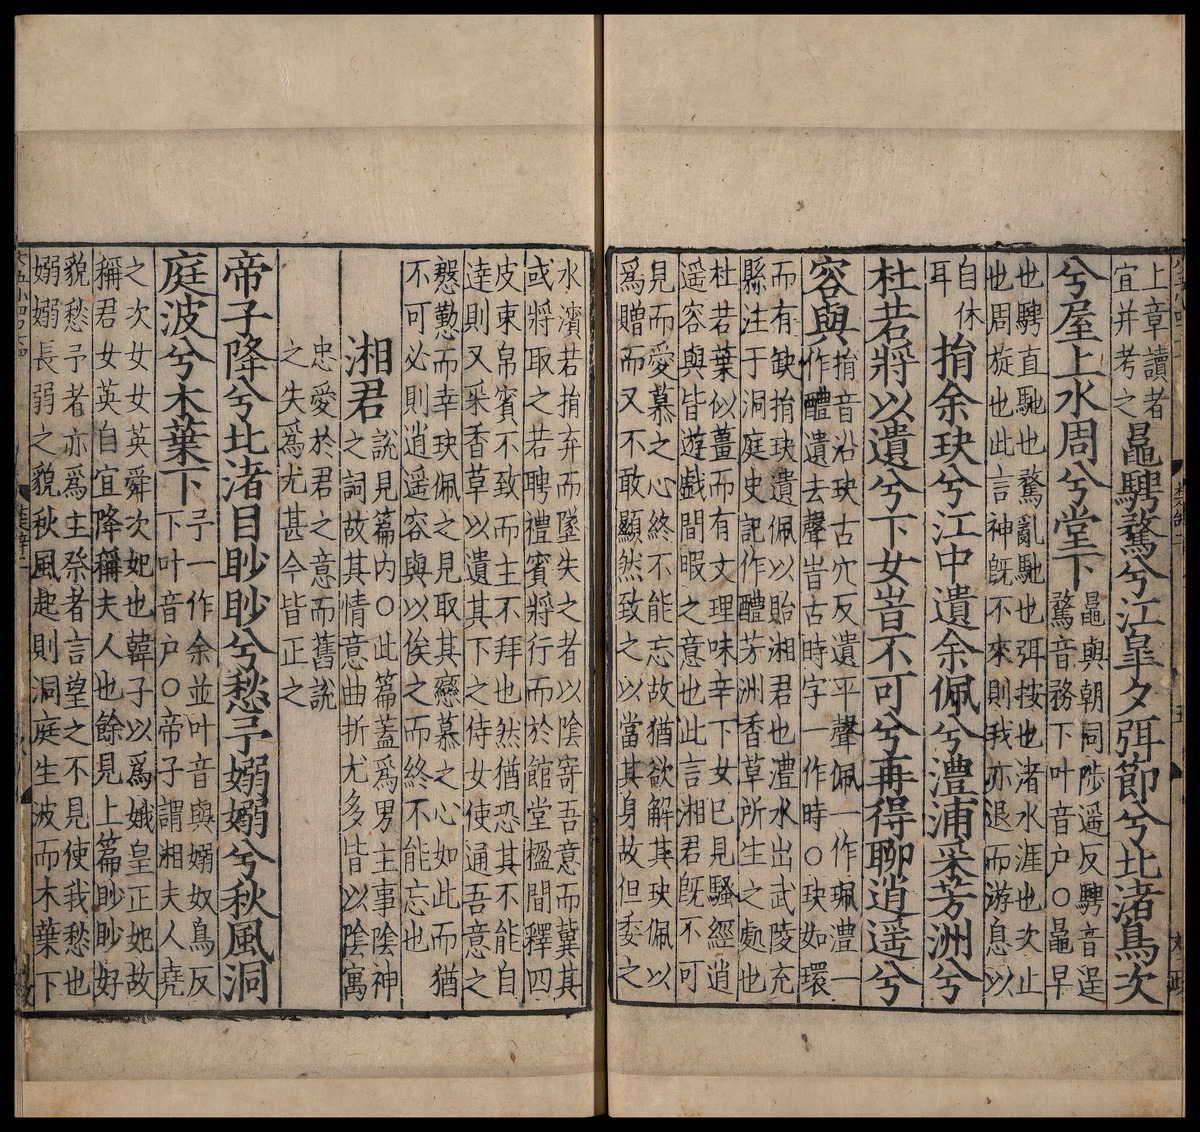 上章讀者
宜并考之
鼂騁騖兮江皐夕弭節兮北渚鳥次
兮屋上水周兮堂下
鼂與朝同陟遥反騁音逞
騖音務下叶音户○鼂早
也騁直馳也騖亂馳也弭按也渚水涯也次止
也周旋也此言神旣不來則我亦退而游息以
自休
耳
捐余玦兮江中遺余佩兮澧浦采芳洲兮
杜若將以遺兮下女旹不可兮再得聊逍遥兮
容與
捐音沿玦古穴反遺平聲佩一作珮澧一
作醴遺去聲旹古時字一作時○玦如環
而有缺捐玦遺佩以貽湘君也澧水出武陵充
縣注于洞庭史記作醴芳洲香草所生之處也
杜若葉似薑而有文理味辛下女已見騷經逍
遥容與皆遊戲間暇之意也此言湘君旣不可
見而愛慕之心終不能忘故猶欲解其玦佩以
爲贈而又不敢顯然致之以當其身故但委之
水濱若捐弃而墜失之者以陰寄吾意而冀其
或將取之若聘禮賓將行而於館堂楹間釋四
皮束帛賓不致而主不拜也然猶恐其不能自
達則又采香草以遺其下之侍女使通吾意之
慇懃而幸玦佩之見取其戀慕之心如此而猶
不可必則逍遥容與以俟之而終不能忘也
湘君
說見篇内○此篇蓋爲男主事陰神
之詞故其情意曲折尤多皆以陰寓
忠愛於君之意而舊說
之失爲尤甚今皆正之
帝子降兮北渚目眇眇兮愁予嫋嫋兮秋風洞
庭波兮木葉下
予一作余並叶音與嫋奴鳥反
下叶音户○帝子謂湘夫人堯
之次女女英舜次妃也韓子以爲娥皇正妃故
稱君女英自宜降稱夫人也餘見上篇眇眇好
貌愁予者亦爲主祭者言望之不見使我愁也
嫋嫋長弱之貌秋風起則洞庭生波而木葉下